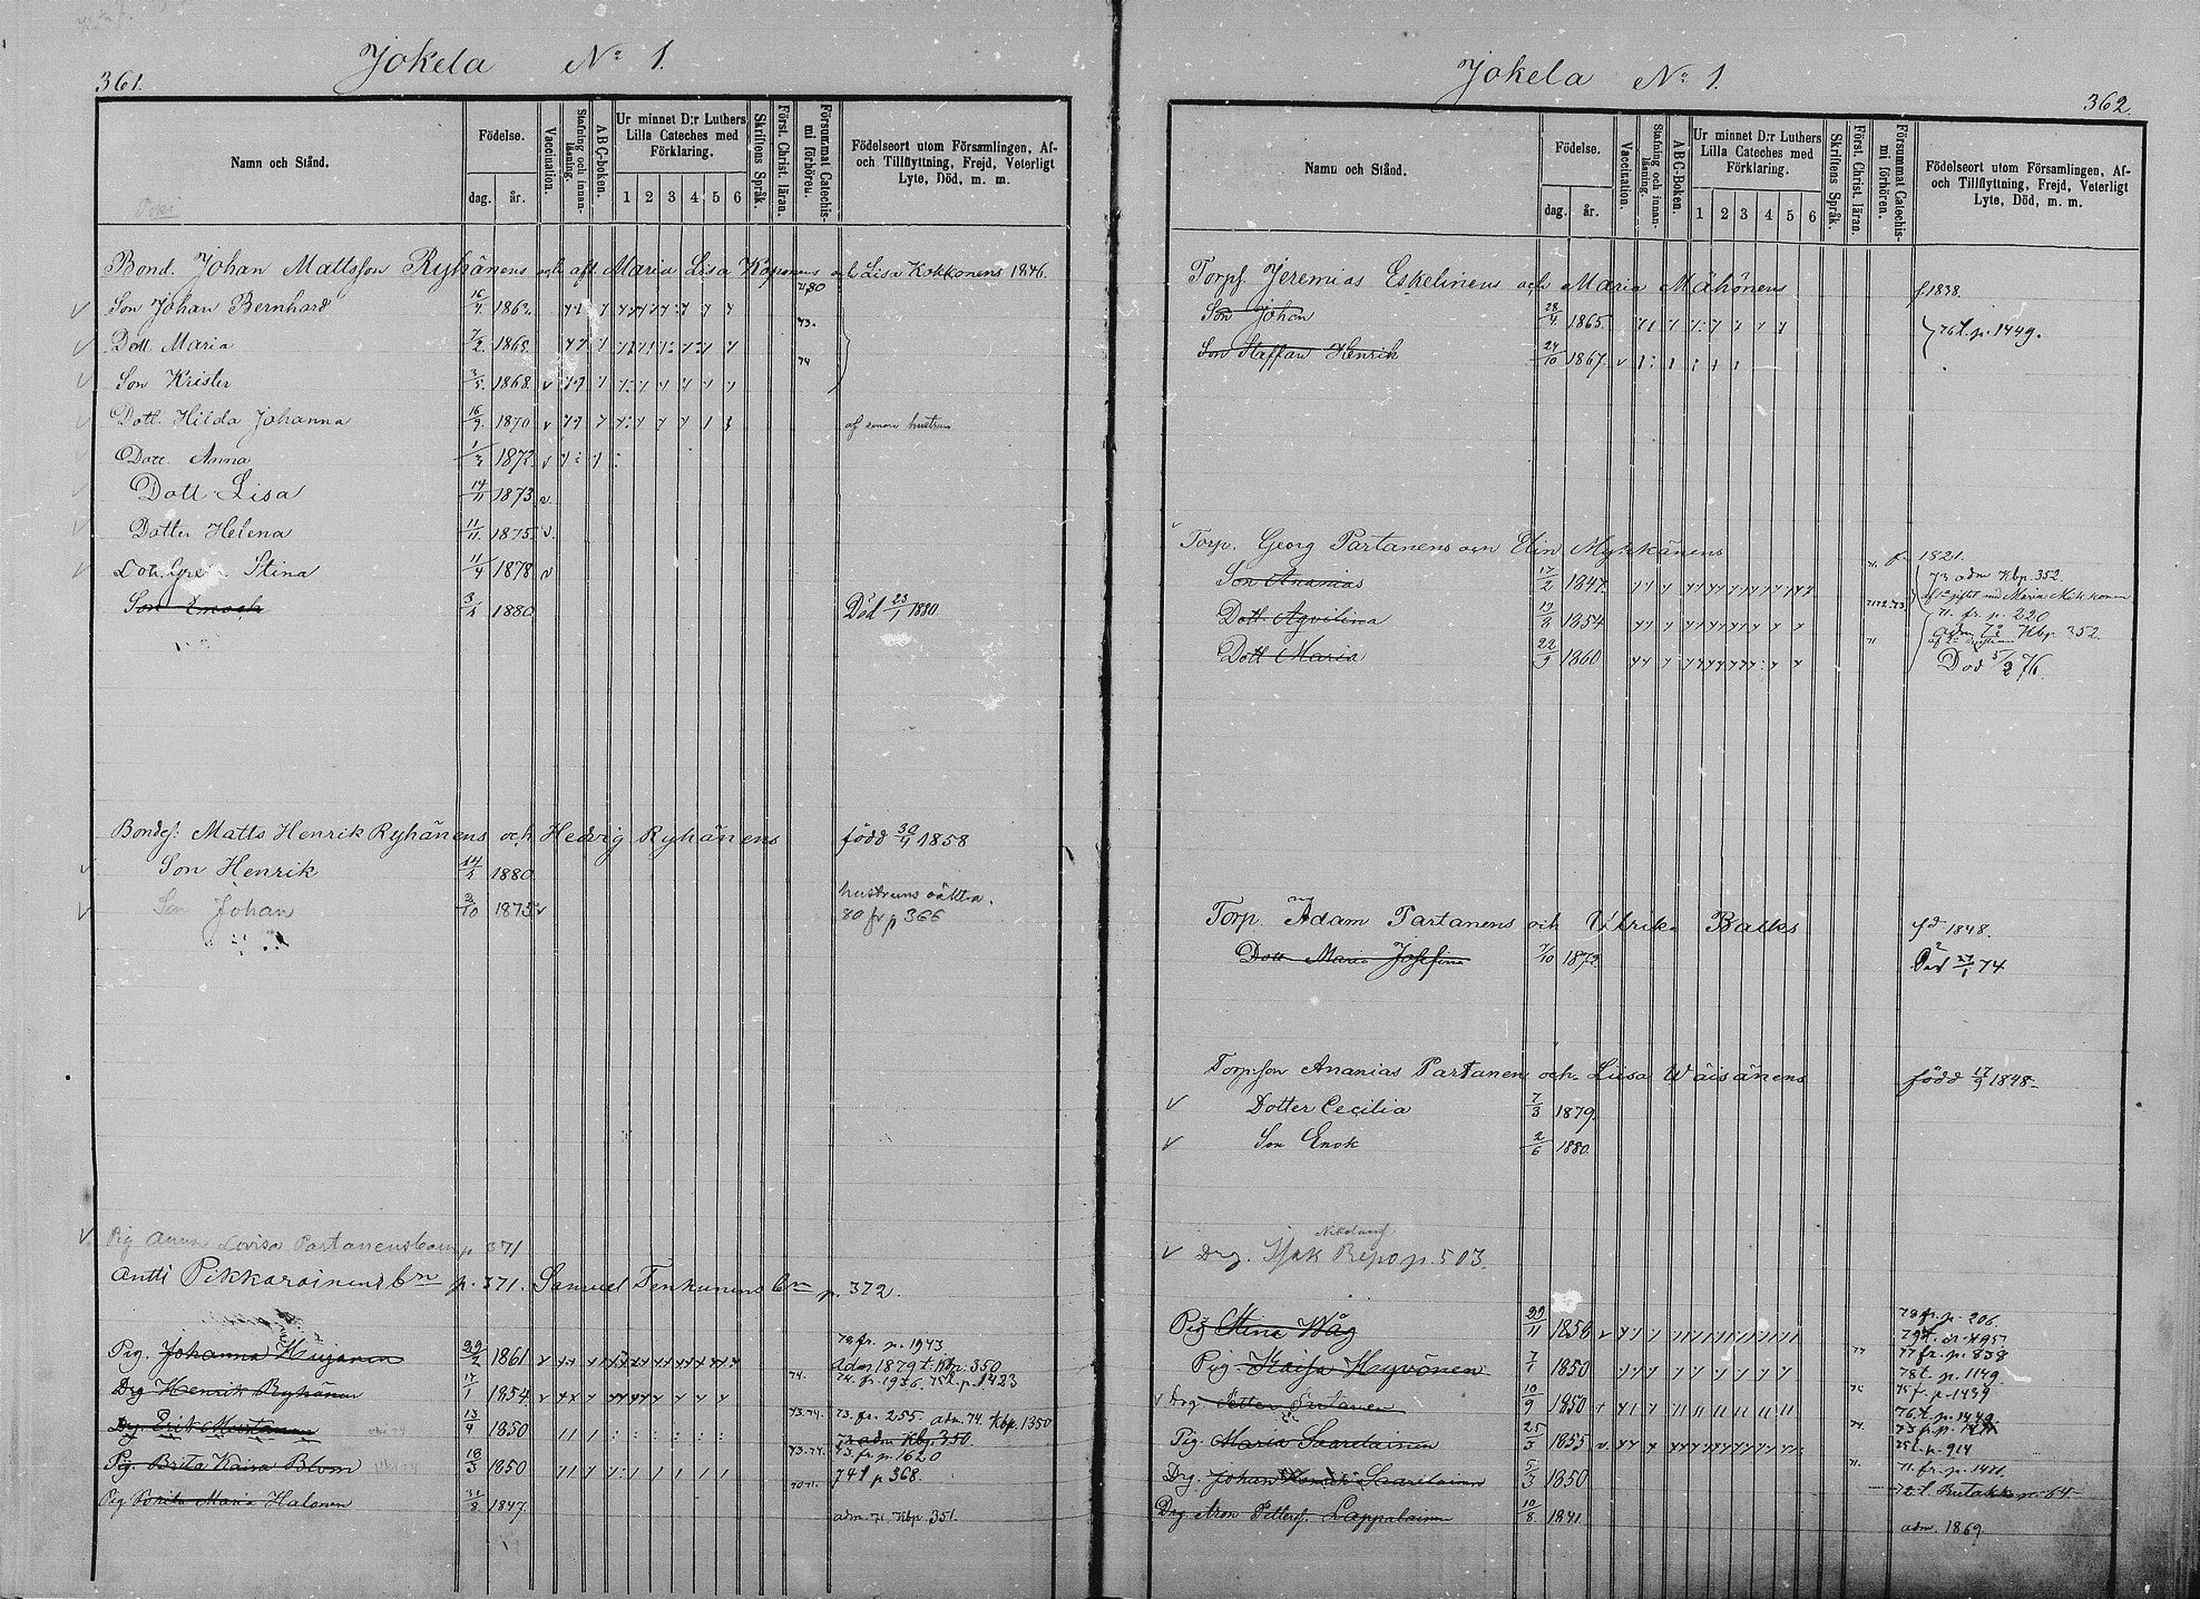 361.
Jokela No 1.
Namn och Stånd.
Födelse.
dag. år.
Vaccination.
Stafning och innanläsning.
ABC-boken.
Ur minnet D:r Luthers Lilla Cateches med Förklaring.
1 2 3 4 5 6
Skriftens Språk.
Först. Christ. läran.
Försummat Catechismi förhören.
Födelseort utom Församlingen, Af- och Tillflyttning, Frejd, Veterligt Lyte, Död, m. m.
Bond. Johan Mattsson Ryhänens och aft. Maria Lisa Koponens och Lisa Kokkonens 1846.
Son Johan Bernhard 16/4 1862.
Dott. Maria 7/2 1865 73.
Son Krister 3/5 1868. v 74
Dott. Hilda Johanna 16/9 1870 v af senare hustrun
Dott. Anna 1/3 1872 v
Dott. Lisa 14/11 1873 v.
Dotter Helena 11/11 1875 v.
Stina 11/4 1878 v
Son Enoch 3/1 1880 Död 23/1 1880.
Bondes: Matts Henrik Ryhänens och Hedvig Ryhänens född 30/4 1858
Son Henrik 1880
Son Johan 3/10 1875 v hustruns oäkta. 80 fr p 366
Pig Anna Lovisa Partanens barn p 371
Antti Pikkarainens bn p. 371. Samuel Tenhunens bn p. 372.
Pig. Johanna 22/2 1861 78 fr. p. 1943 adm 1879 t. Kbp. 350
Drg Henrik Ryhänen 17/1 1854 v 74. 74. fr. 1936. 75 t. p. 1423
Dg. Erik 13/4 1850 73.74. 73. fr. 255. adm. 74. Kbp. 1350
Pig. Brita Kaisa Blom 18/3 1850 73.74. 73 adm Kbp. 350. 73. fr p. 1620 74 t p 368.
Pig Brita Maria Halonen 31/8 1847 70 71. adm. 71. Kbp. 351.
Jokela No 1.
362.
Namn och Stånd.
Födelse.
dag. år.
Vaccination.
Stafning och innanläsning.
ABC-Boken.
Ur minnet D:r Luthers Lilla Cateches med Förklaring.
1 2 3 4 5 6
Skriftens Språk.
Först. Christ. läran.
Försummat Catechismi förhören.
Födelseort utom Församlingen, Af- och Tillflyttning, Frejd, Veterligt Lyte, Död, m. m.
Torps. Jeremias Eskelinens och Maria Mähönens f. 1838.
Son Johan 28/4 1865. 76 t. p. 1449.
Son Staffan Henrik 24/10 1867. v
Torp. Georg Partanens och Elin Mykkänens f. 1821.
Son Ananias 17/2 1847. 73 adm Kbp. 352.
Dott. Agvilina 19/8 1854 71 72.73 71. fr. p. 220 adm 73 Kbp 352.
Dott Maria 22/9 1860 71 Död 5/2 76.
Torp. Adam Partanens och Ulrika Balks fd 1848.
Dott Maria Josefina 7/10 1872 Död 27/1 74
Torpson Ananias Partanen och Liisa Wäisänens född 17/9 1848
Dotter Cecilia 7/3 1879.
Son Enok 2/6 1880.
Drg. Isak Repo p. 503.
Pig Stina Wåg 29/11 1856 v 78. fr. p. 206. 79
Pig. Kaisa Hyvönen 7/1 1850 77 77 fr. p. 838 78 t. p. 1149.
Drg. Petter 10/9 1850 75 75 f. p. 1439 76. t. p. 1449
Pig. Maria Saarelainen 25/3 1855 v. 74. 75 t. p. 914
Drg. Johan Henrik Saarelainen 5/3 1850 71. 71. fr. p. 1471. 72 t. p. 64
Drg Aron Petters. Lappalainen 10/8 1841. adm. 1869.